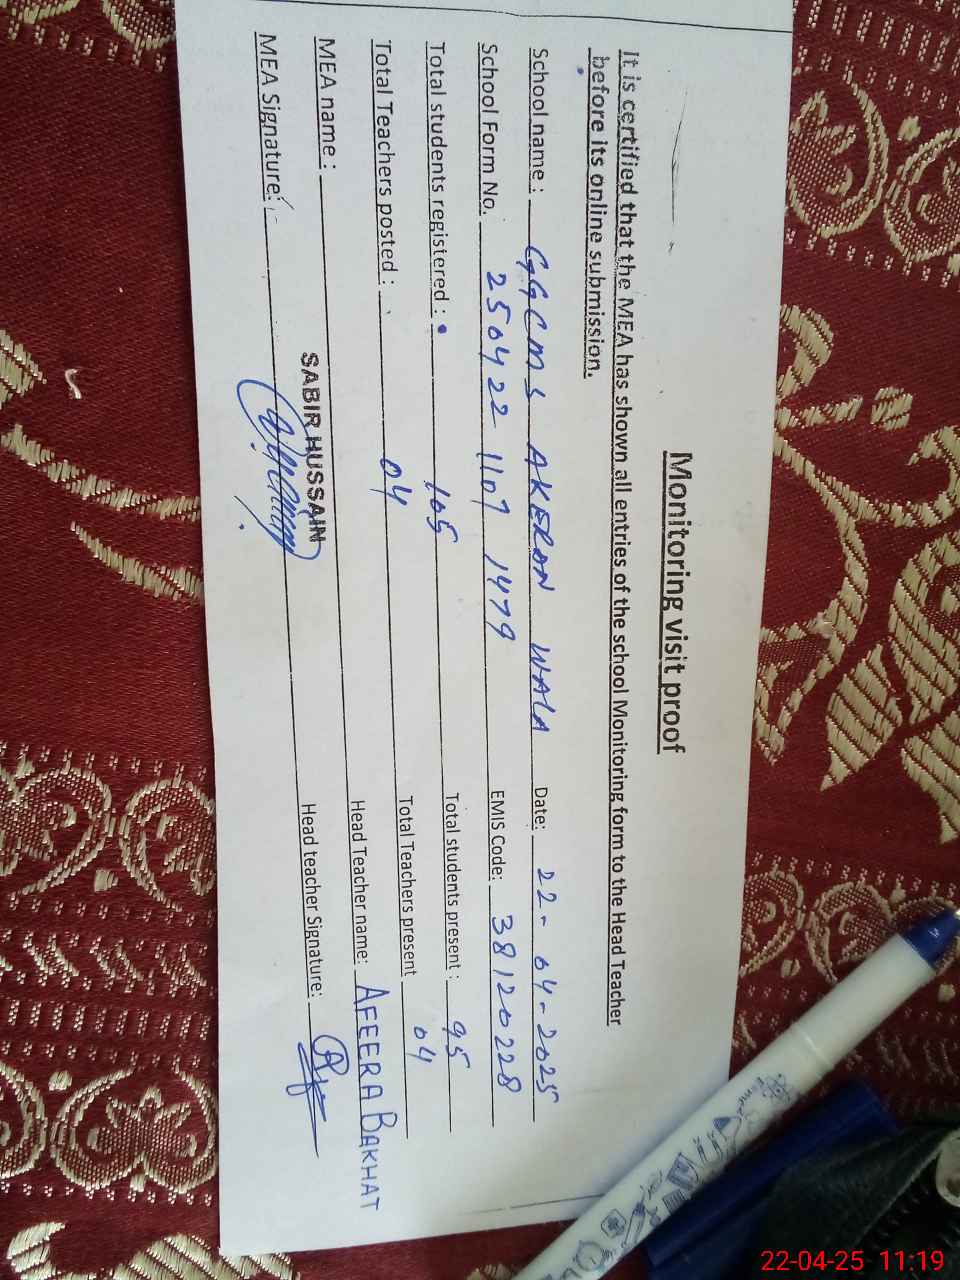 Monitoring visit proof
It is certified that the MEA has shown all entries of the school Monitoring form to the Head Teacher
before its online submission.
School name : GGCMS AKERON WALA Date: 22-04-2025
School Form No. 250422 1107 1479 EMIS Code: 38120228
Total students registered : 105 Total students present : 95
Total Teachers posted : 04 Total Teachers present 04
MEA name : SABIR HUSSAIN Head Teacher name: AFEERA BAKHAT
MEA Signature: Head teacher Signature:
22-04-25 11:19